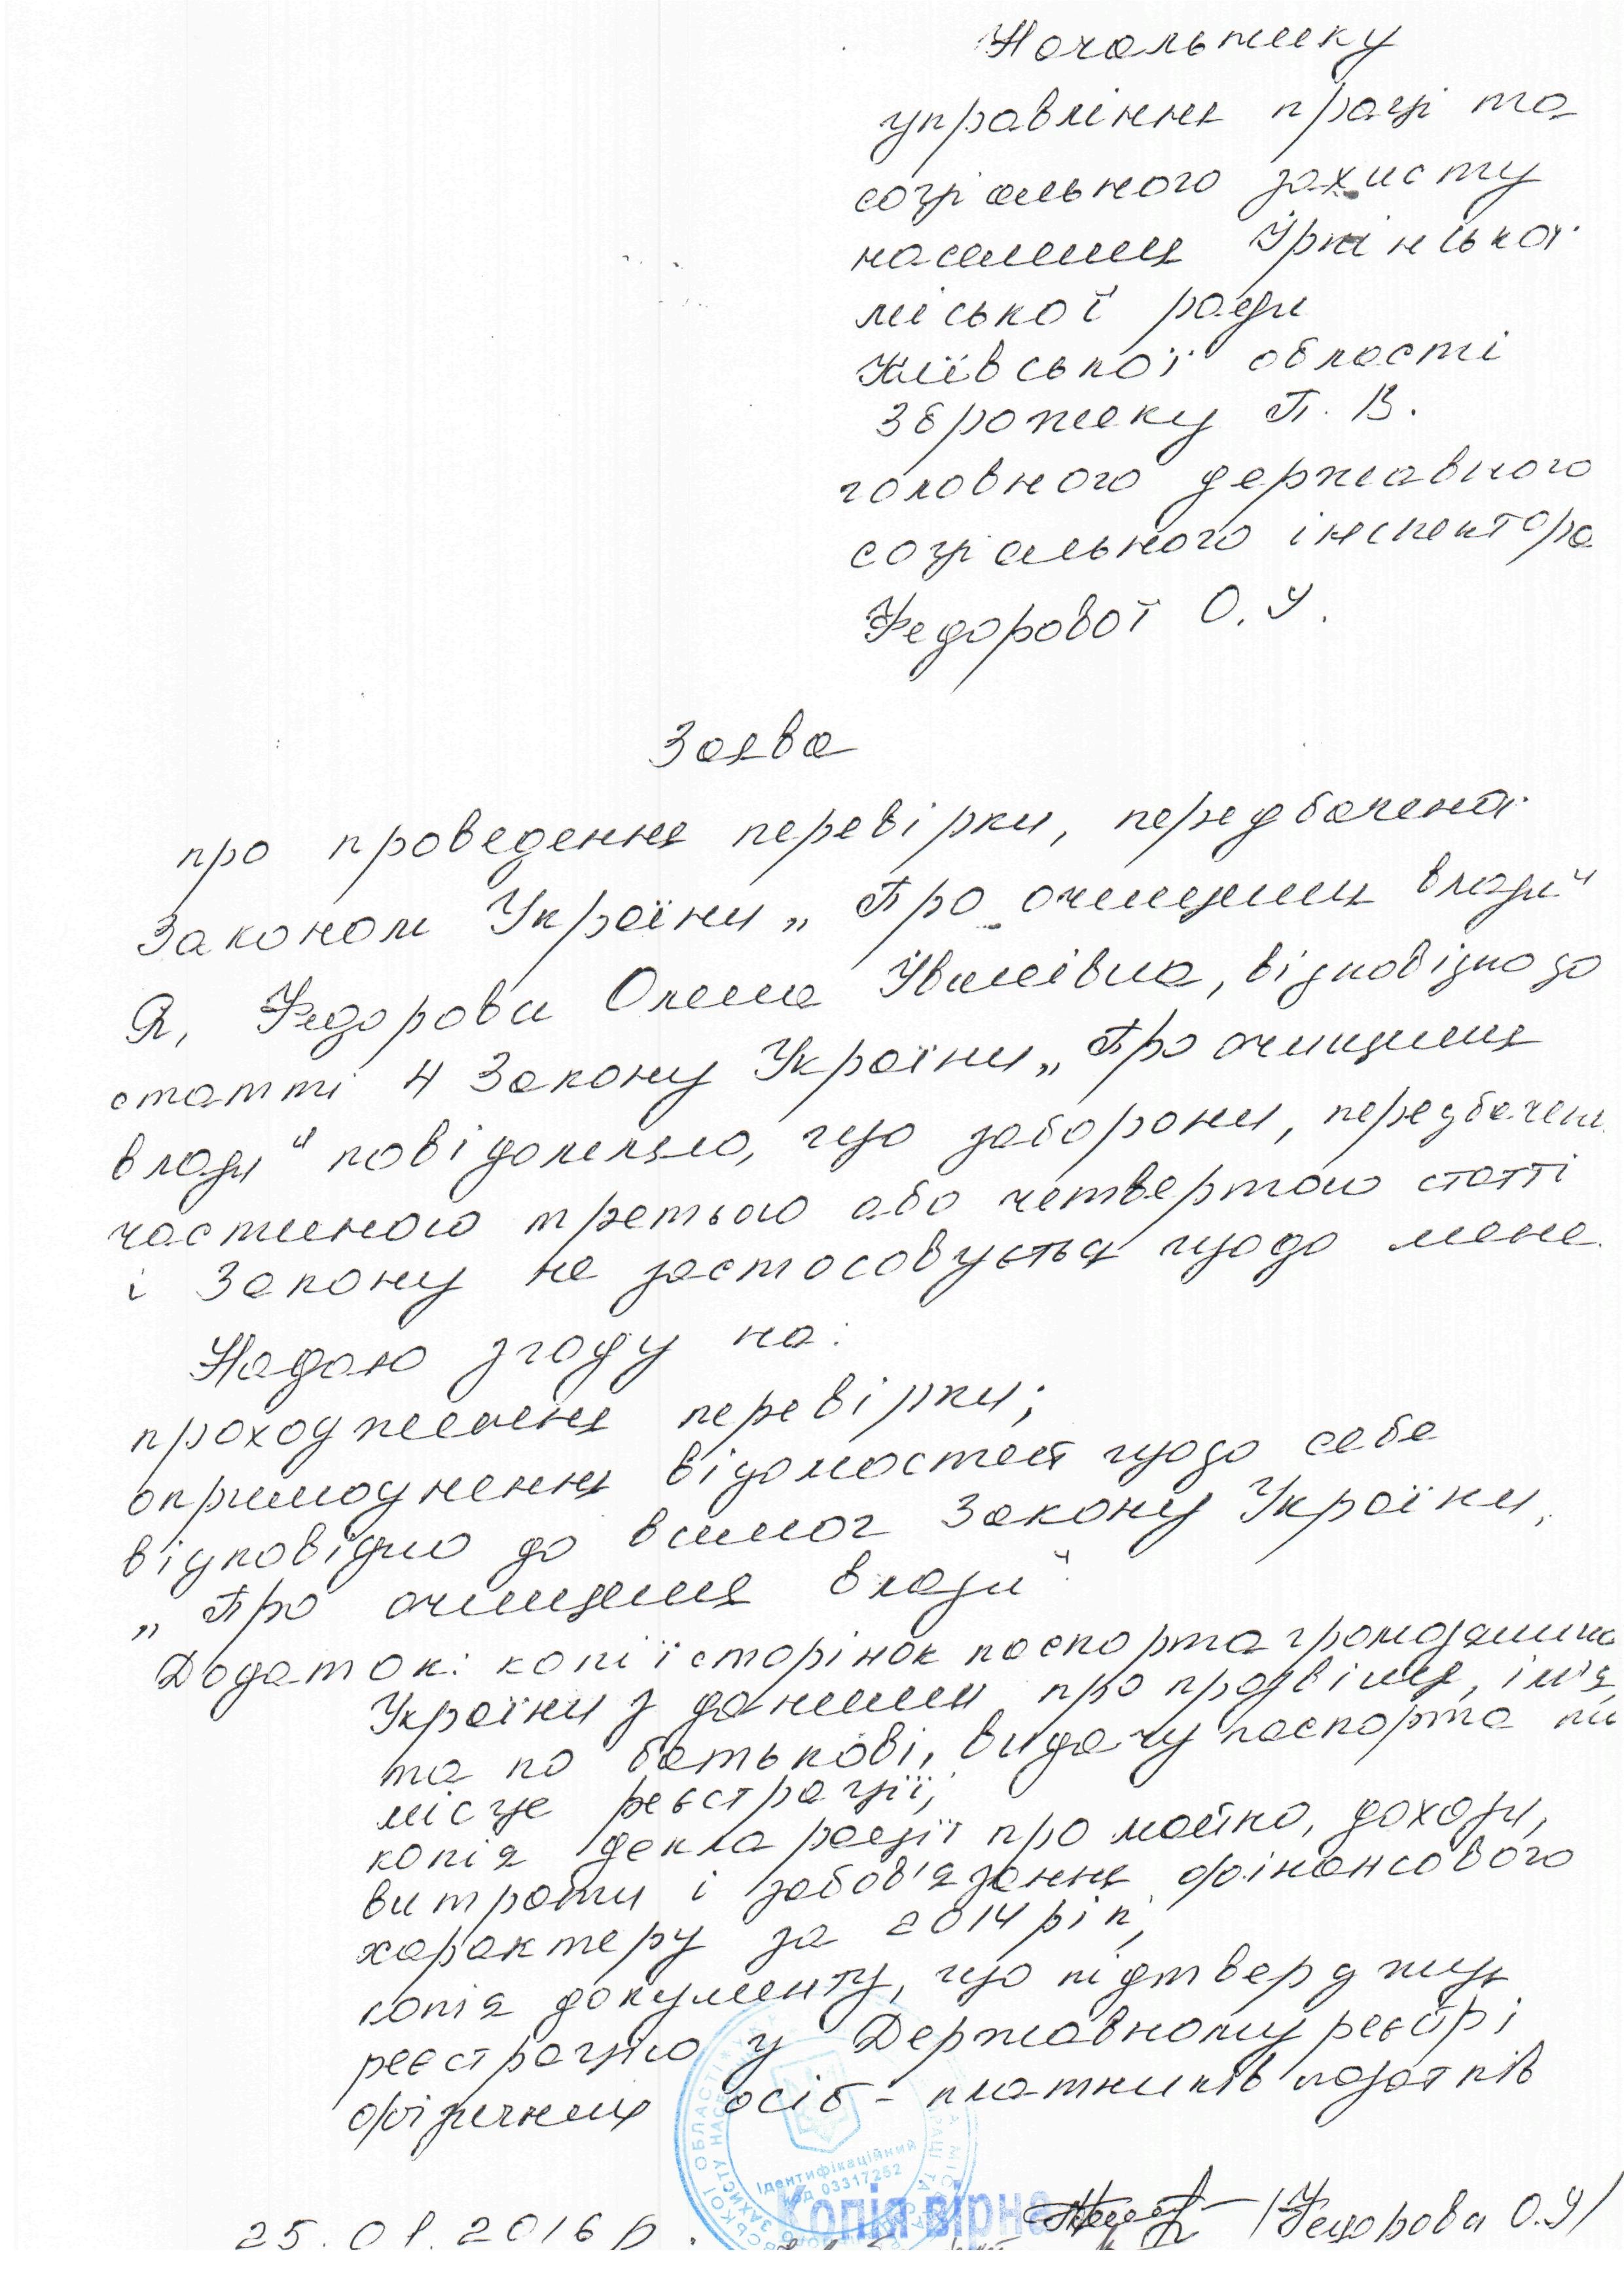 Начальнику
управління праці та
соціального захисту
населення Ірпінської
міської ради
Київської області
Зброжеку П. В.
головного державного
соціального інспектора
Федорової О. І.
Заява
про проведення перевірки, передбаченої
Законом України „Про очищення влади"
Я, Федорова Олена Іванівна, відповідно до
статті 4 Закону України „Про очищення
влади" повідомляю, що заборони, передбачені
частиною третьою або четвертою статті
і Закону не застосовується щодо мене.
Надаю згоду на:
проходження перевірки;
оприлюднення відомостей щодо себе
відповідно до вимог Закону України,
„Про очищення влади".
Додаток: копії сторінок паспорта громадянина
України з даними про прізвище, ім'я,
та по батькові, видачу паспорта
місце реєстрації;
копія декларації про майно, доходи,
витрати і зобов'язання фінансового
характеру за 2014 рік;
копія документу, що підтверджує
реєстрацію у Державному реєстрі
фізичних осіб - платників податків
Ідентифікаційний
код 03317252
Копія вірна
25.01.2016 р. /Федорова О.І/